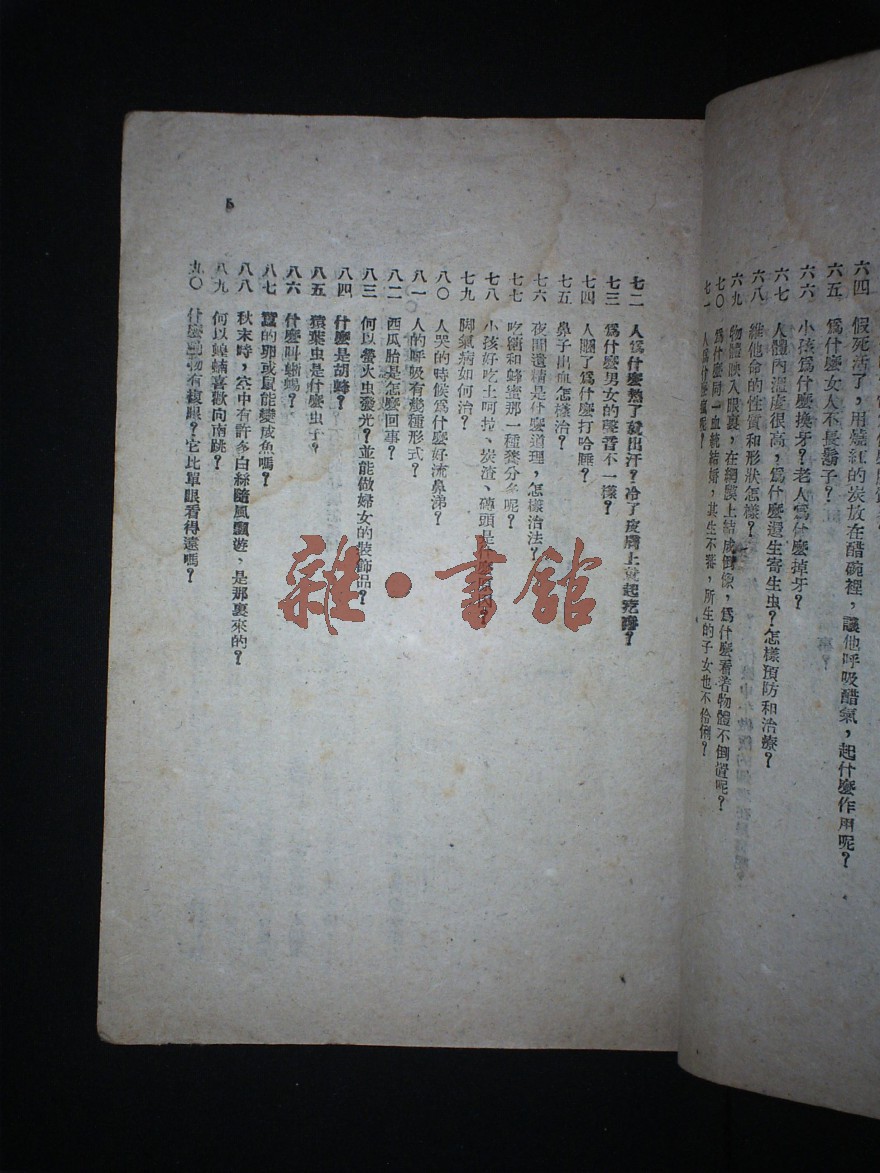 六四 假死活了，用燒紅的炭放在醋碗裡，讓他呼吸醋氣，起什麼作用呢？
六五 爲什麼女人不長鬍子？
六六 小孩爲什麼換牙？老人爲什麼掉牙？
六七 人體內溫度很高，爲什麼還生寄生虫？怎樣預防和治療？
六八 維他命的性質和形狀怎樣？
六九 物體映入眼裏，在網膜上結成倒像，爲什麼看着物體不倒置呢？
七〇 爲什麼同一血統結婚，其生不蕃，所生的子女也不伶俐？
七一 人爲什麼
七二 人爲什麼熱了就出汗？冷了皮膚上就起疙瘩？
七三 爲什麼男女的聲音不一樣？
七四 人睏了爲什麼打哈
七五 鼻子出血怎樣治？
七六 夜間遺精是什麼道理，怎樣治法？
七七 吃糖和蜂蜜那一種養分多呢？
七八 小孩好吃土坷垃、炭渣、磚頭是什麼
七九 脚氣病如何治？
八〇 人哭的時候爲什麼好流鼻涕？
八一 人的呼吸有幾種形式？
八二 西瓜胎是怎麼回事？
八三 何以螢火虫發光？並能做婦女的裝飾品？
八四 什麼是胡蜂？
八五 猿葉虫是什麼虫子？
八六 什麼叫蜥蜴？
八七 的卵或鼠能變成魚嗎？
八八 秋末時，空中有許多白絲隨風飄遊，是那裏來的？
八九 何以 喜歡向南跳？
九〇 什麼動物有複眼？它比單眼看得遠嗎？
5
雜·書館